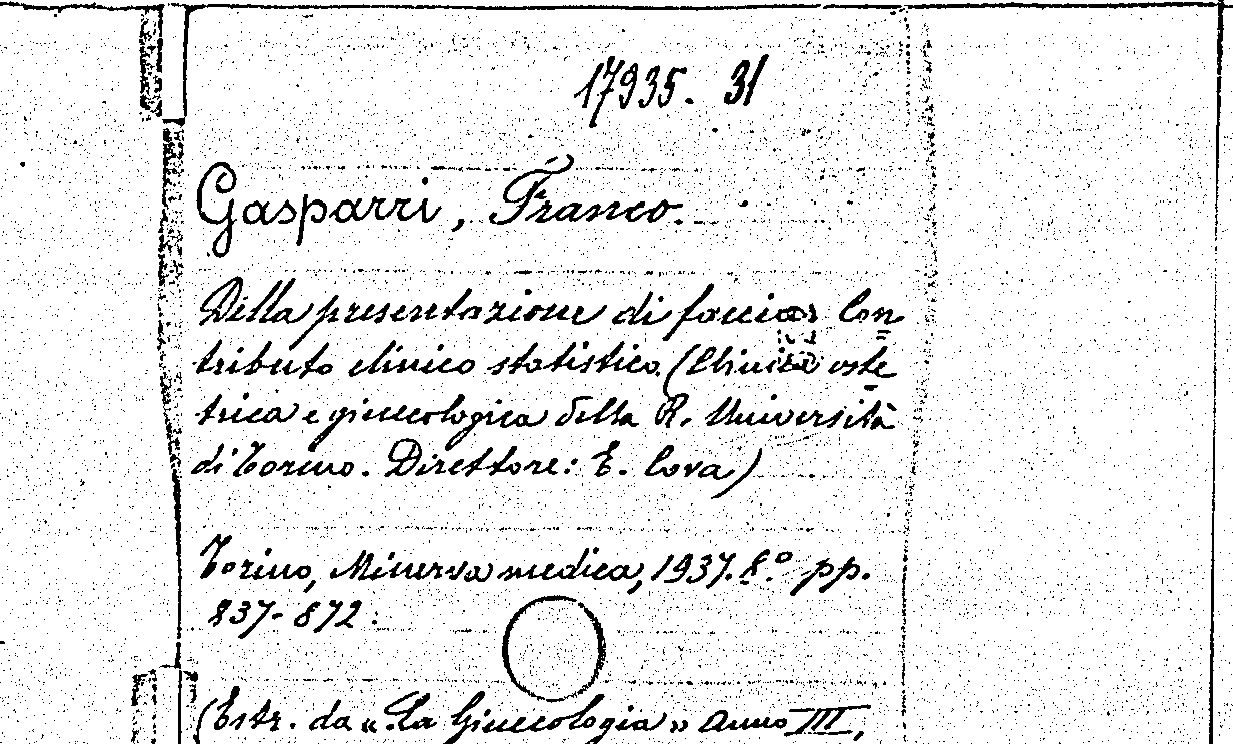 17935. 31
Gasparri, Franco.
Della presentazione di faccia. Con
tributo clinico statistico. (Clinica oste
trica e ginecologica della R. Università
di Torino. Direttore: E. Cova)
Torino, Minerva medica, 1937. 8.° pp.
837-872.
(Estr. da « La Ginecologia » anno III,